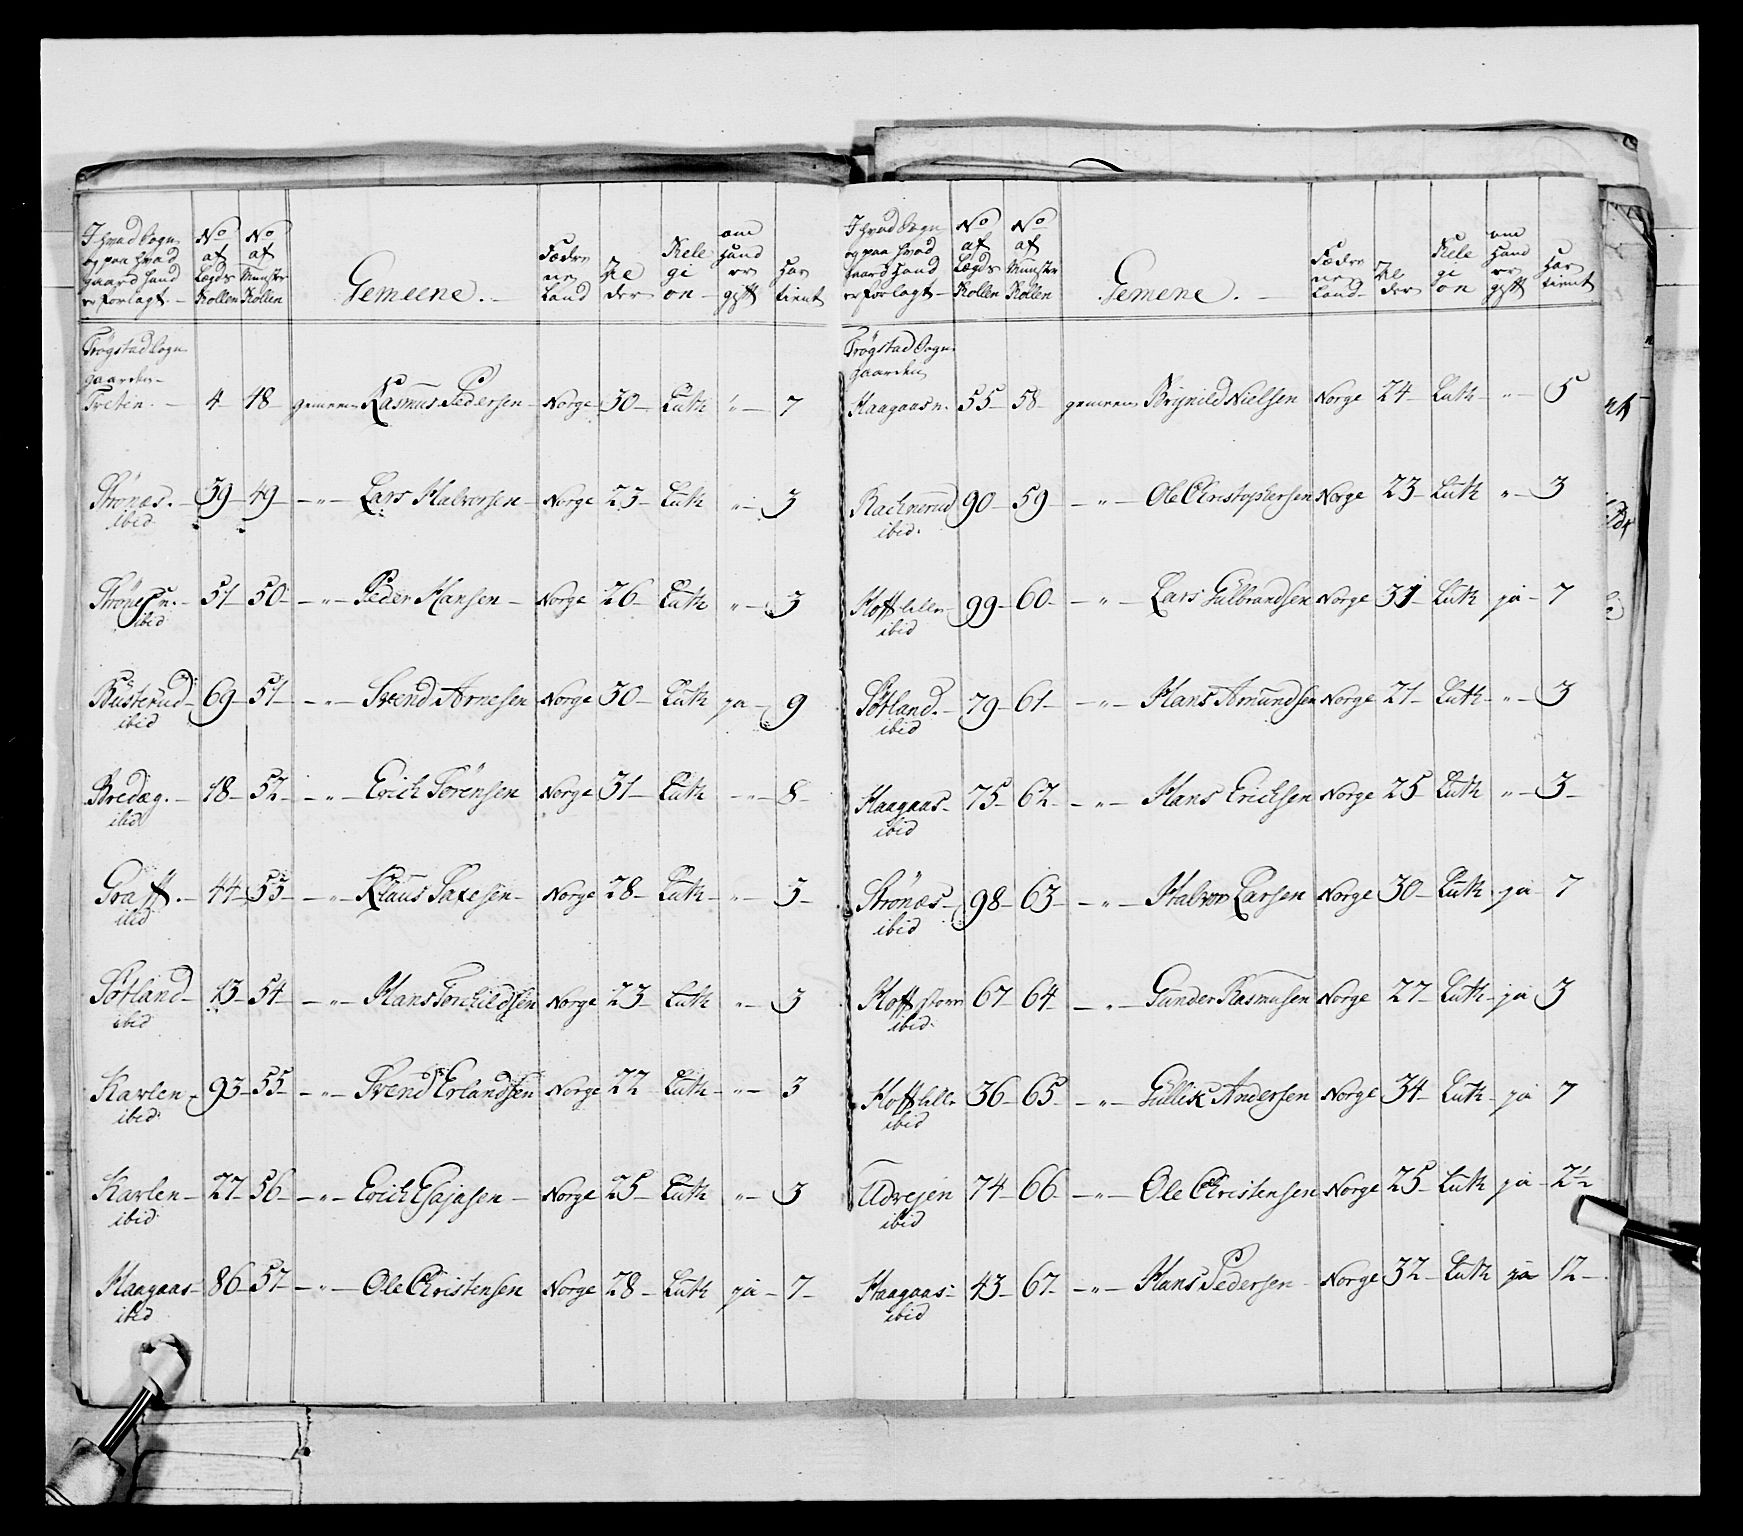 I hvad Sogn og paa hvad gaard hand er forlagt.- No af Lægds Rollen No af Munster Rollen Gemeene.- Fædrene Land Alder Religion- om Hand er gift har tient
Trögstad Sogn
gaarden-
Tretin.- 4 48 gemeen Rasmus Pedersen- Norge 30 Luth " 7
Strönæs.- 59 49 -"- Lars Halvorsen- Norge 23 Luth " 3
ibid
51 50 -"- Peder Hansen- Norge 26 Luth " 3
ibid
Büsterud 69 51 -"- Svend Arnesen Norge 30 Luth ja 9
ibid
Bredæg.- 18 52 -"- Erich Sörensen Norge 31 Luth " 8
ibid
Graff.- 44 53 -"- Norge 28 Luth " 3
ibid
Sötland- 13 54 -"- Hans Torchildsen Norge 23 Luth " 3
ibid
Karlen- 93 55 -"- Svend Erlandsen Norge 22 Luth " 3
ibid
Karlen- 27 56 -"- Erich Norge 25 Luth " 3
ibid
Haagaas 86 57 -"- Ole Christensen Norge 28 Luth ja 7
ibid
I hvad Sogn og paa hvad Gaard Hand er forlagt- No af Lægds Rollen No af Munster Rollen Gemene.- Fædrene Land- Alder Religion om Hand er gift Har tient
Trögstad Sogn
gaarden
Haagaasn. 55 58 gemeen Brynild Nielsen Norge 24 Luth " 5
90 59 -"- Ole Christophersen Norge 23 Luth " 3
ibid.
Hofflille 99 60 -"- Lars Gülbrandsen Norge 31 Luth ja 7
ibid
Sötland.- 79 61 -"- Hans Amundsen Norge 21 Luth " 3
ibid
Haagaas- 75 62 -"- Hans Erichsen Norge 25 Luth " 3
ibid
Strönæs- 98 63 -"- Halvor Larsen Norge 30 Luth ja 7
ibid
Hoff storr 67 64 -"- Gunder Rasmusen Norge 27 Luth ja 3
ibid.
Hofflille 36 65 -"- Güllik Andersen Norge 34 Luth ja 7
ibid
Udvejen 74 66 -"- Ole Christensen Norge 25 Luth ja 2½
ibid
Haagaas- 43 67 -"- Hans Pedersen Norge 32 Luth ja 12
ibid